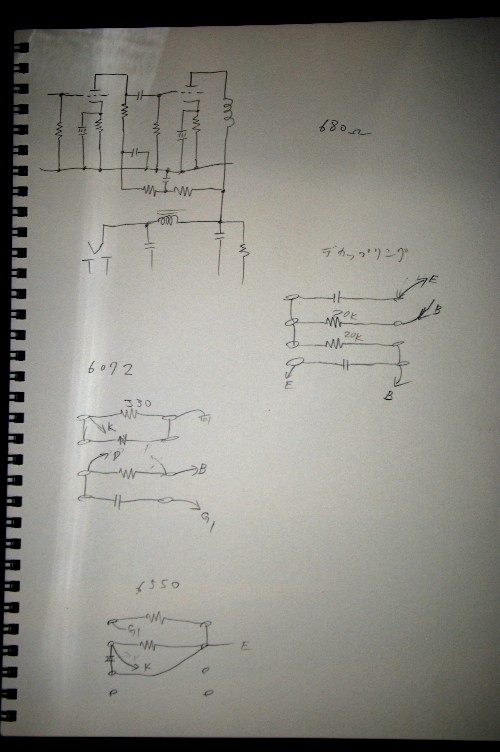 680Ω
デカップリング
E
20K
B
20K
E
B
6072
330
K
E
P
B
G1
6550
G1
E
K